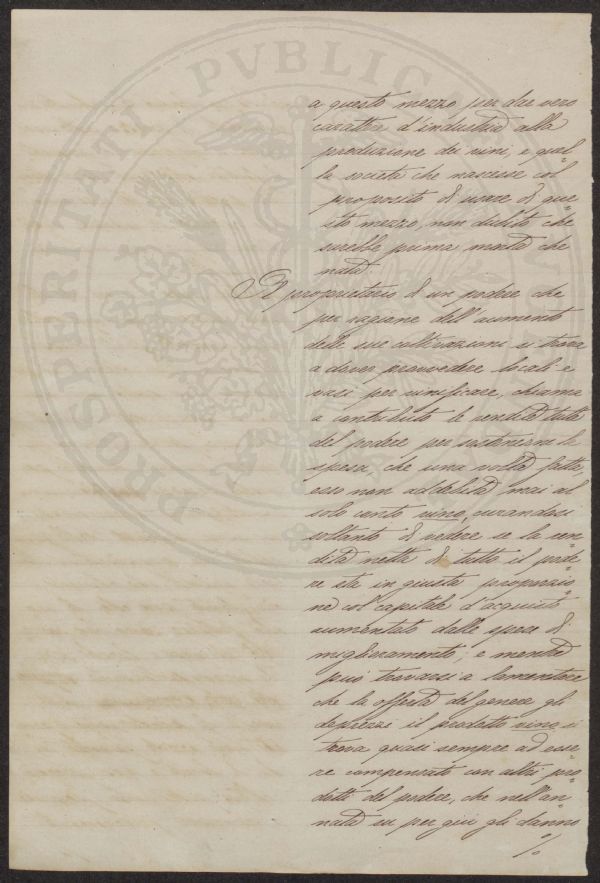 PROSPERITATI PVBLICAE
a questo mezzo per dar vero
carattere d'industria alla
produzione dei vini, e quel=
la società che nascesse col
proposito di usare di que=
sto mezzo, non dubito che
sarebbe prima morta che
nata.
Il proprietario di un podere che
per ragione dell'aumento
delle sue coltivazioni si trova
a dover provvedere locali e
vasi per vinificare, chiama
a contributo le rendite tutte
del podere per sostenerne le
spese, che una volta fatte,
esso non addebita mai al
solo conto vino, curandosi
soltanto di vedere se la ren=
dita netta di tutto il pode=
re sta in giusta proporzio=
ne col capitale d'acquisto
aumentato dalle spese di
miglioramento; e mentre
può trovarsi a lamentare
che la offerta del genere gli
deprezzi il prodotto vino, si
trova quasi sempre ad esse=
re compensato con altri pro=
dotti del podere, che nell'an=
nata su per giù gli danno
./.